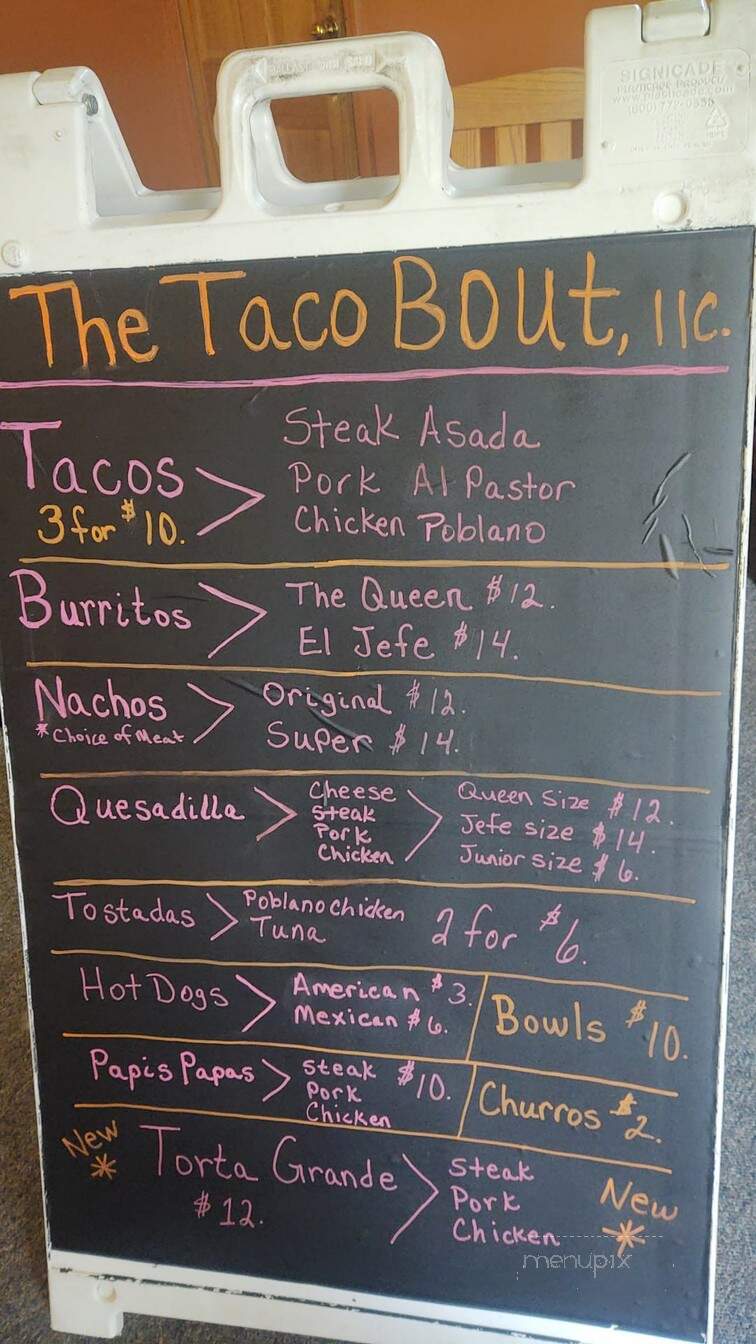 SIGNICADE
PLASTICADE PRODUCT
The Taco BOUt, llc.
Tacos
3 for $10.
Steak Asada
Pork Al Pastor
Chicken Poblano
Burritos
The Queen $12.
El Jefe $14.
Nachos
*Choice of Meat
Original $12.
Super $14.
Quesadilla
Cheese
Steak
Pork
Chicken
Queen Size $12.
Jefe size $14.
Junior size $6.
Tostadas
Poblano chicken
Tuna
2 for $6.
Hot Dogs
American $3.
Mexican $6.
Bowls $10.
Papis Papas
Steak $10.
Pork
Chicken
Churros $2.
New
*
Torta Grande
$12.
Steak
Pork
Chicken
New
*
menupix